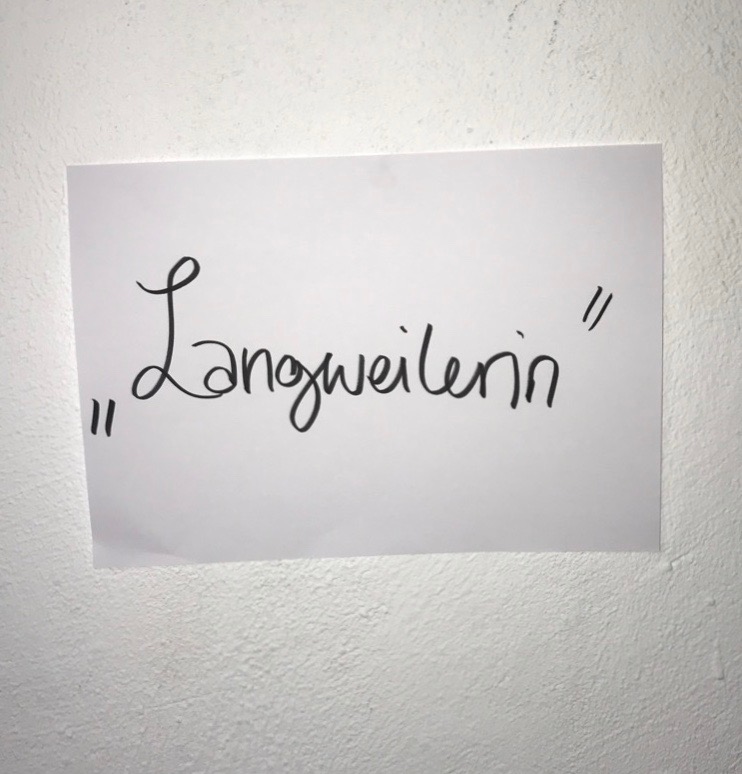 „Langweilerin"